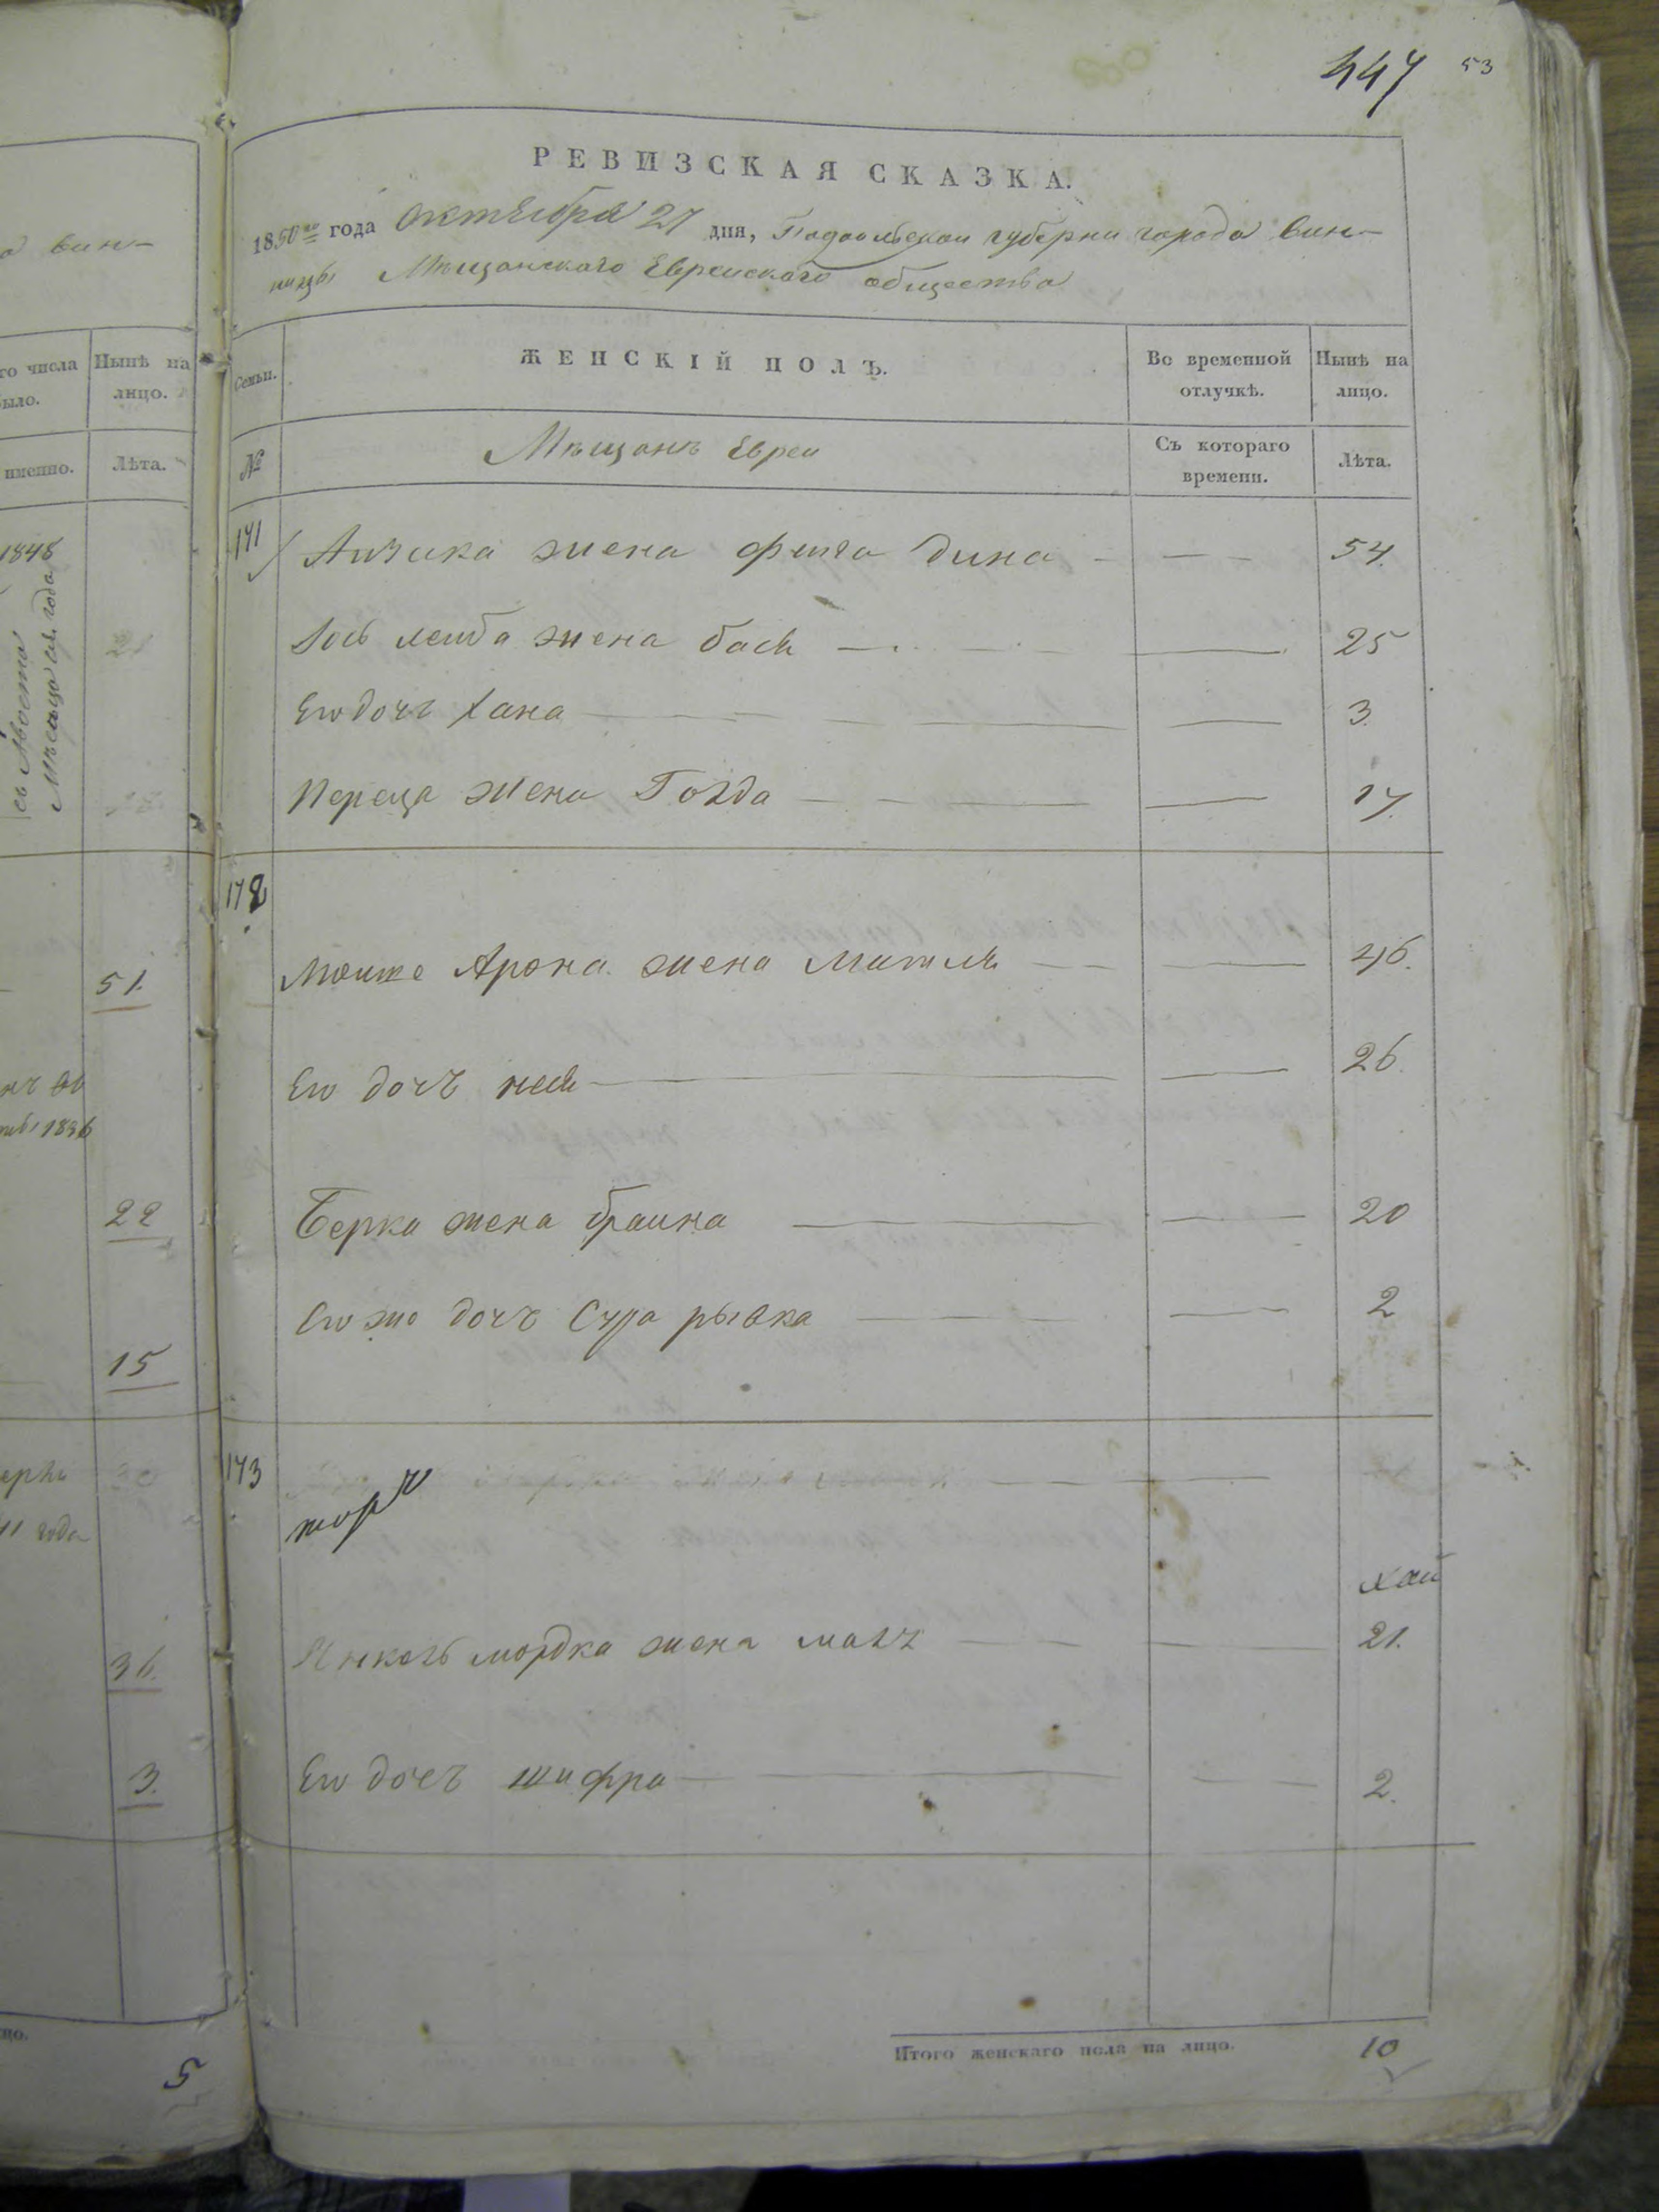 447 53
РЕВИЗСКАЯ СКАЗКА.
1850го года октября 27 дня, Подольской губерни города Вин-
ницы Мещанского Еврейского общества
Семьи. ЖЕНСКІЙ ПОЛЪ. Во временной отлучкѣ. Нынѣ на лицо.
№ Мещанъ Евреи Съ котораго времени. Лѣта.
171 Аизика жена Фейга Дина — 54.
Іось лейба жена бася — 25
Его дочь Хана — 3.
Переца жена Голда — 17.
172
Мошке Арона жена — 46.
Его дочъ неся — 26.
Берка жена браина — 20
Его же дочъ Сура рывка — 2
173
Янкель мордка жена — 21.
Его дочъ шифра — 2.
Итого женскаго пола на лицо. 10
вин-
го числа было. Нынѣ на лицо.
именно. Лѣта.
1848
51.
1836
22
15
года
36.
3.
5